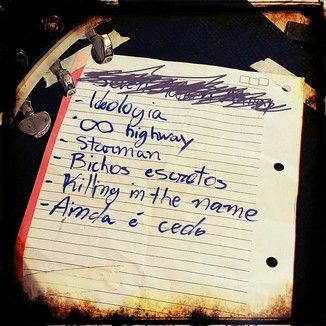 - Ideologia
- ∞ highway
- Starman
- Bichos escrotos
- Killing in the name
- Ainda é cedo